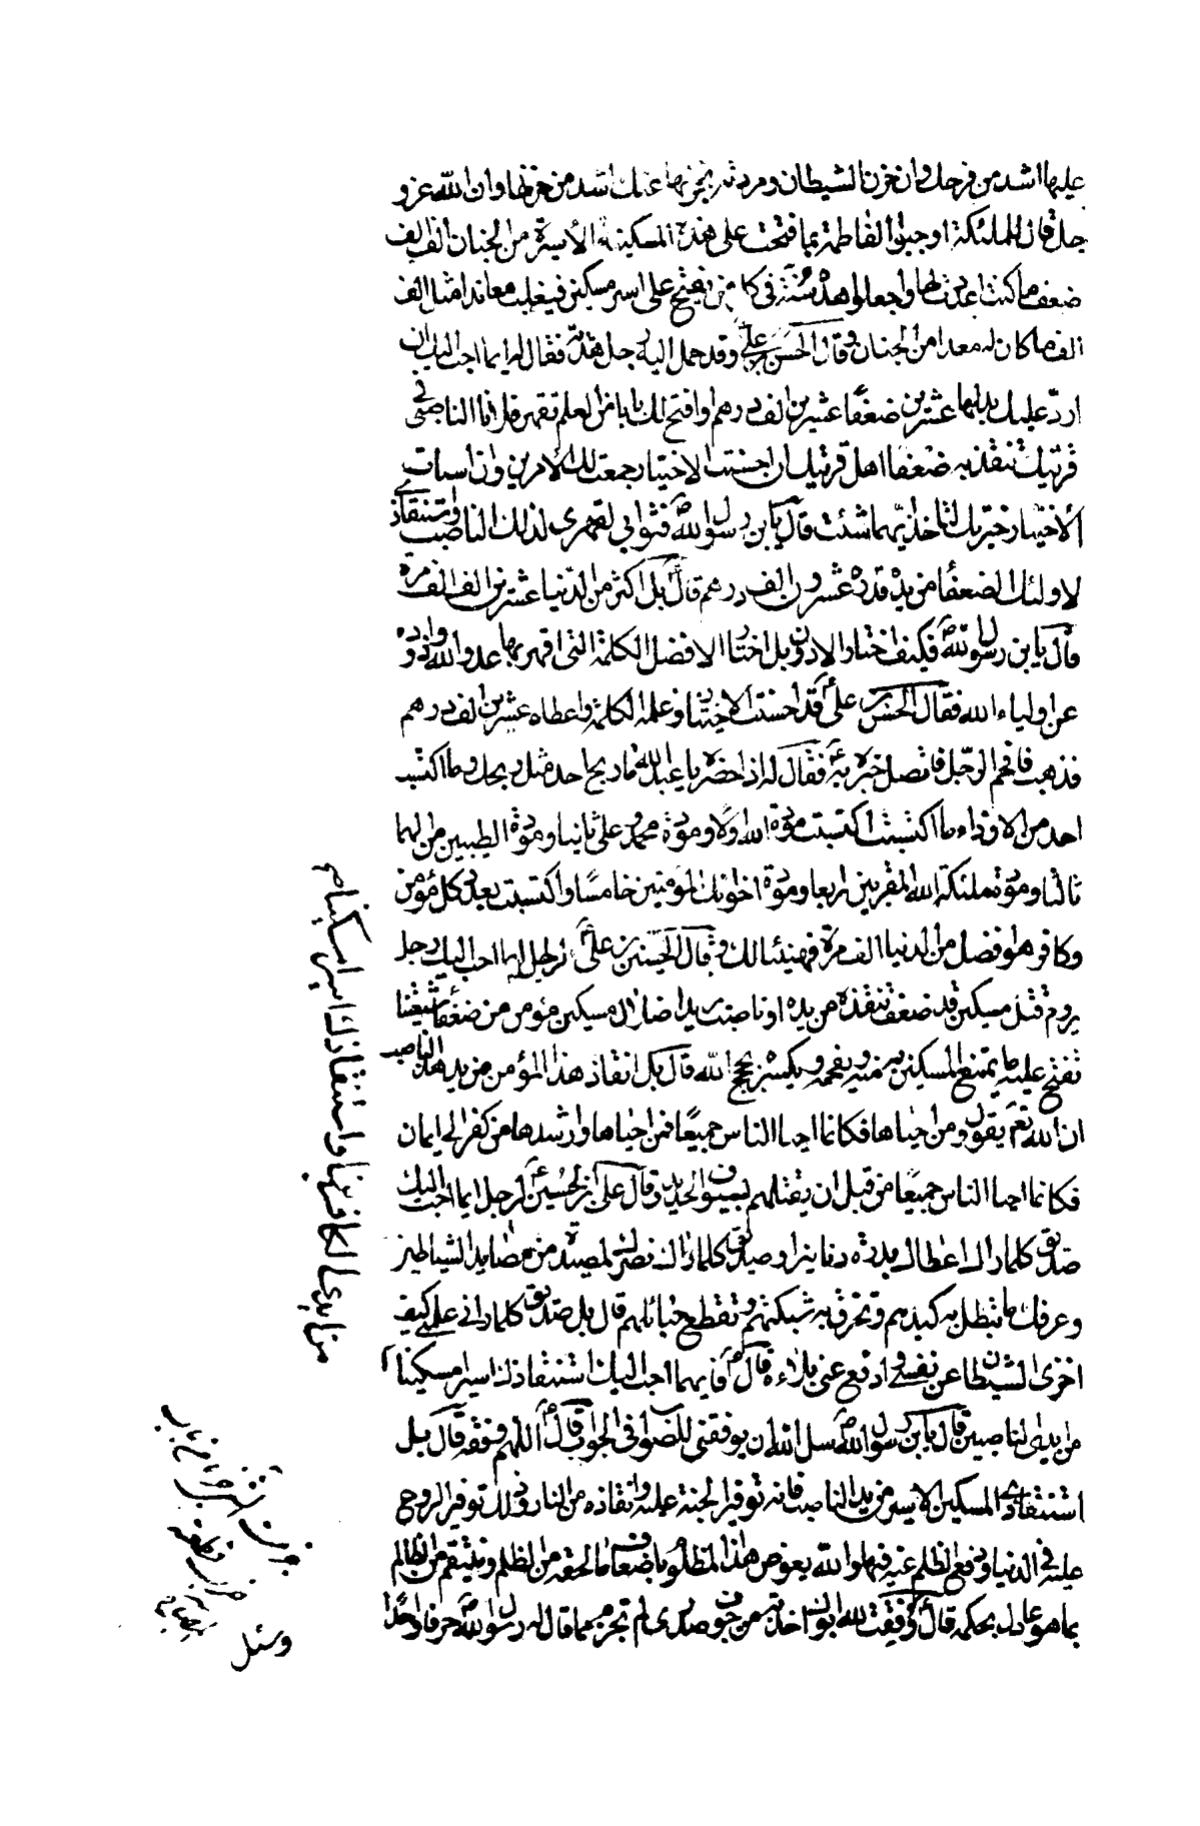 عليها اشد من فرحك وان حزن الشيطان ومردته بحزنها عنك اشد من حزنها وان الله عز و
جل قال للملئكة اوجبوا لفاطمة بما فتحت على هذه المسكينة الأسيرة من الجنان الف الف
ضعف ما كنت اعددت لها واجعلوا هذه سنة فى كل من يفتح على اسير مسكين فيغلب معاندا مثل الف
الف ما كان له معدا من الجنان وقال الحسن بن علي ع وقد حمل اليه رجل هدية فقال له ايما احب اليك ان
ارد عليك بدلها عشرين ضعفا عشرين الف درهم او افتح لك بابا من العلم تقهر فلانا الناصبى فى
قريتك تنقذ به ضعفا اهل قريتك ان احسنت الاختيار جمعت لك الأمرين وان اسات
الأختيار خيرتك لتأخذ ايهما شئت قال يابن رسول الله ص فثوابي لقهرى لذلك الناصب واستنقاذى
لاولئك الضعفا من يده قدره عشرون الف درهم قال بل اكثر من الدنيا عشرين الف الف مرة
قال يابن رسول الله ص فكيف اختار الادون بل اختار الافضل الكلمة التى اقهر بها عدو الله واذوده
عن اولياء الله فقال الحسن بن علي ع قد احسنت الاختيار وعلمه الكلمة واعطاه عشرين الف درهم
فذهب فافحم الرجل فاتصل خبره به ع فقال له اذ حضره يا عبد الله ما ربح احد مثل ربحك وما اكتسب
احد من الاوداء ما اكتسبت اكتسبت مودة الله اولا ومودة محمد وعلى ثانيا ومودة الطيبين من الهما
ثالثا ومودة ملئكة الله المقربين اربعا ومودة اخوانك المؤمنين خامسا واكتسبت بعدد كل مؤمن
وكافر ما هو افضل من الدنيا الف مرة فهنيئا لك وقال الحسين بن علي ع لرجل ايهما احب اليك رجل
يروم قتل مسكين قد ضعف تنقذه من يده او ناصب يريد اضلال مسكين مؤمن من ضعفا شيعتنا
تفتح عليه ما يمتنع المسكين به منه ويفحمه ويكسره بحجج الله قال بل انقاذ هذا المؤمن من يد هذا الناصب
ان الله تعم يقول ومن احياها فكانما احيا الناس جميعا فمن احياها وارشدها من كفر الى ايمان
فكانما احيا الناس جميعا من قبل ان يقتلهم بسيوف الحديد وقال على بن الحسين ع لرجل ايما احب اليك
صديق كلما راك اعطاك بدرة دنانير او صديق كلما راك نصرك لمصيدة من مصايد الشياطين
وعرفك ما تبطل به كيدهم وتخرق به شبكتهم وتقطع حبائلهم قال بل صديق كلما رانى علمنى كيف
اخزى الشيطان عن نفسى وادفع عنى بلاءه قال ع فايهما احب اليك استنقاذك اسيرا مسكينا
من ايدى الناصبين قال يابن رسول الله ص سل الله ان يوفقنى للصواب فى الجواب قال ع اللهم وفقه قال بل
استنقاذى المسكين الاسير من يد الناصب فانه توفير الجنة عليه وانقاذه من النار وذلك توفير الروح
عليه فى الدنيا ودفع الظلم عنه فيها والله يعوض هذا المظلوم باضعاف ما لحقه من الظلم وينتقم من الظالم
بما هو عادل بحكمه قال ع وفقت لله ابوك اخذته من جوف صدرى لم تجزم مما قاله رسول الله ص حرفا واحدا
من ايدى الكافرين او استنقاذك اسيرا مسكينا م
وسئل